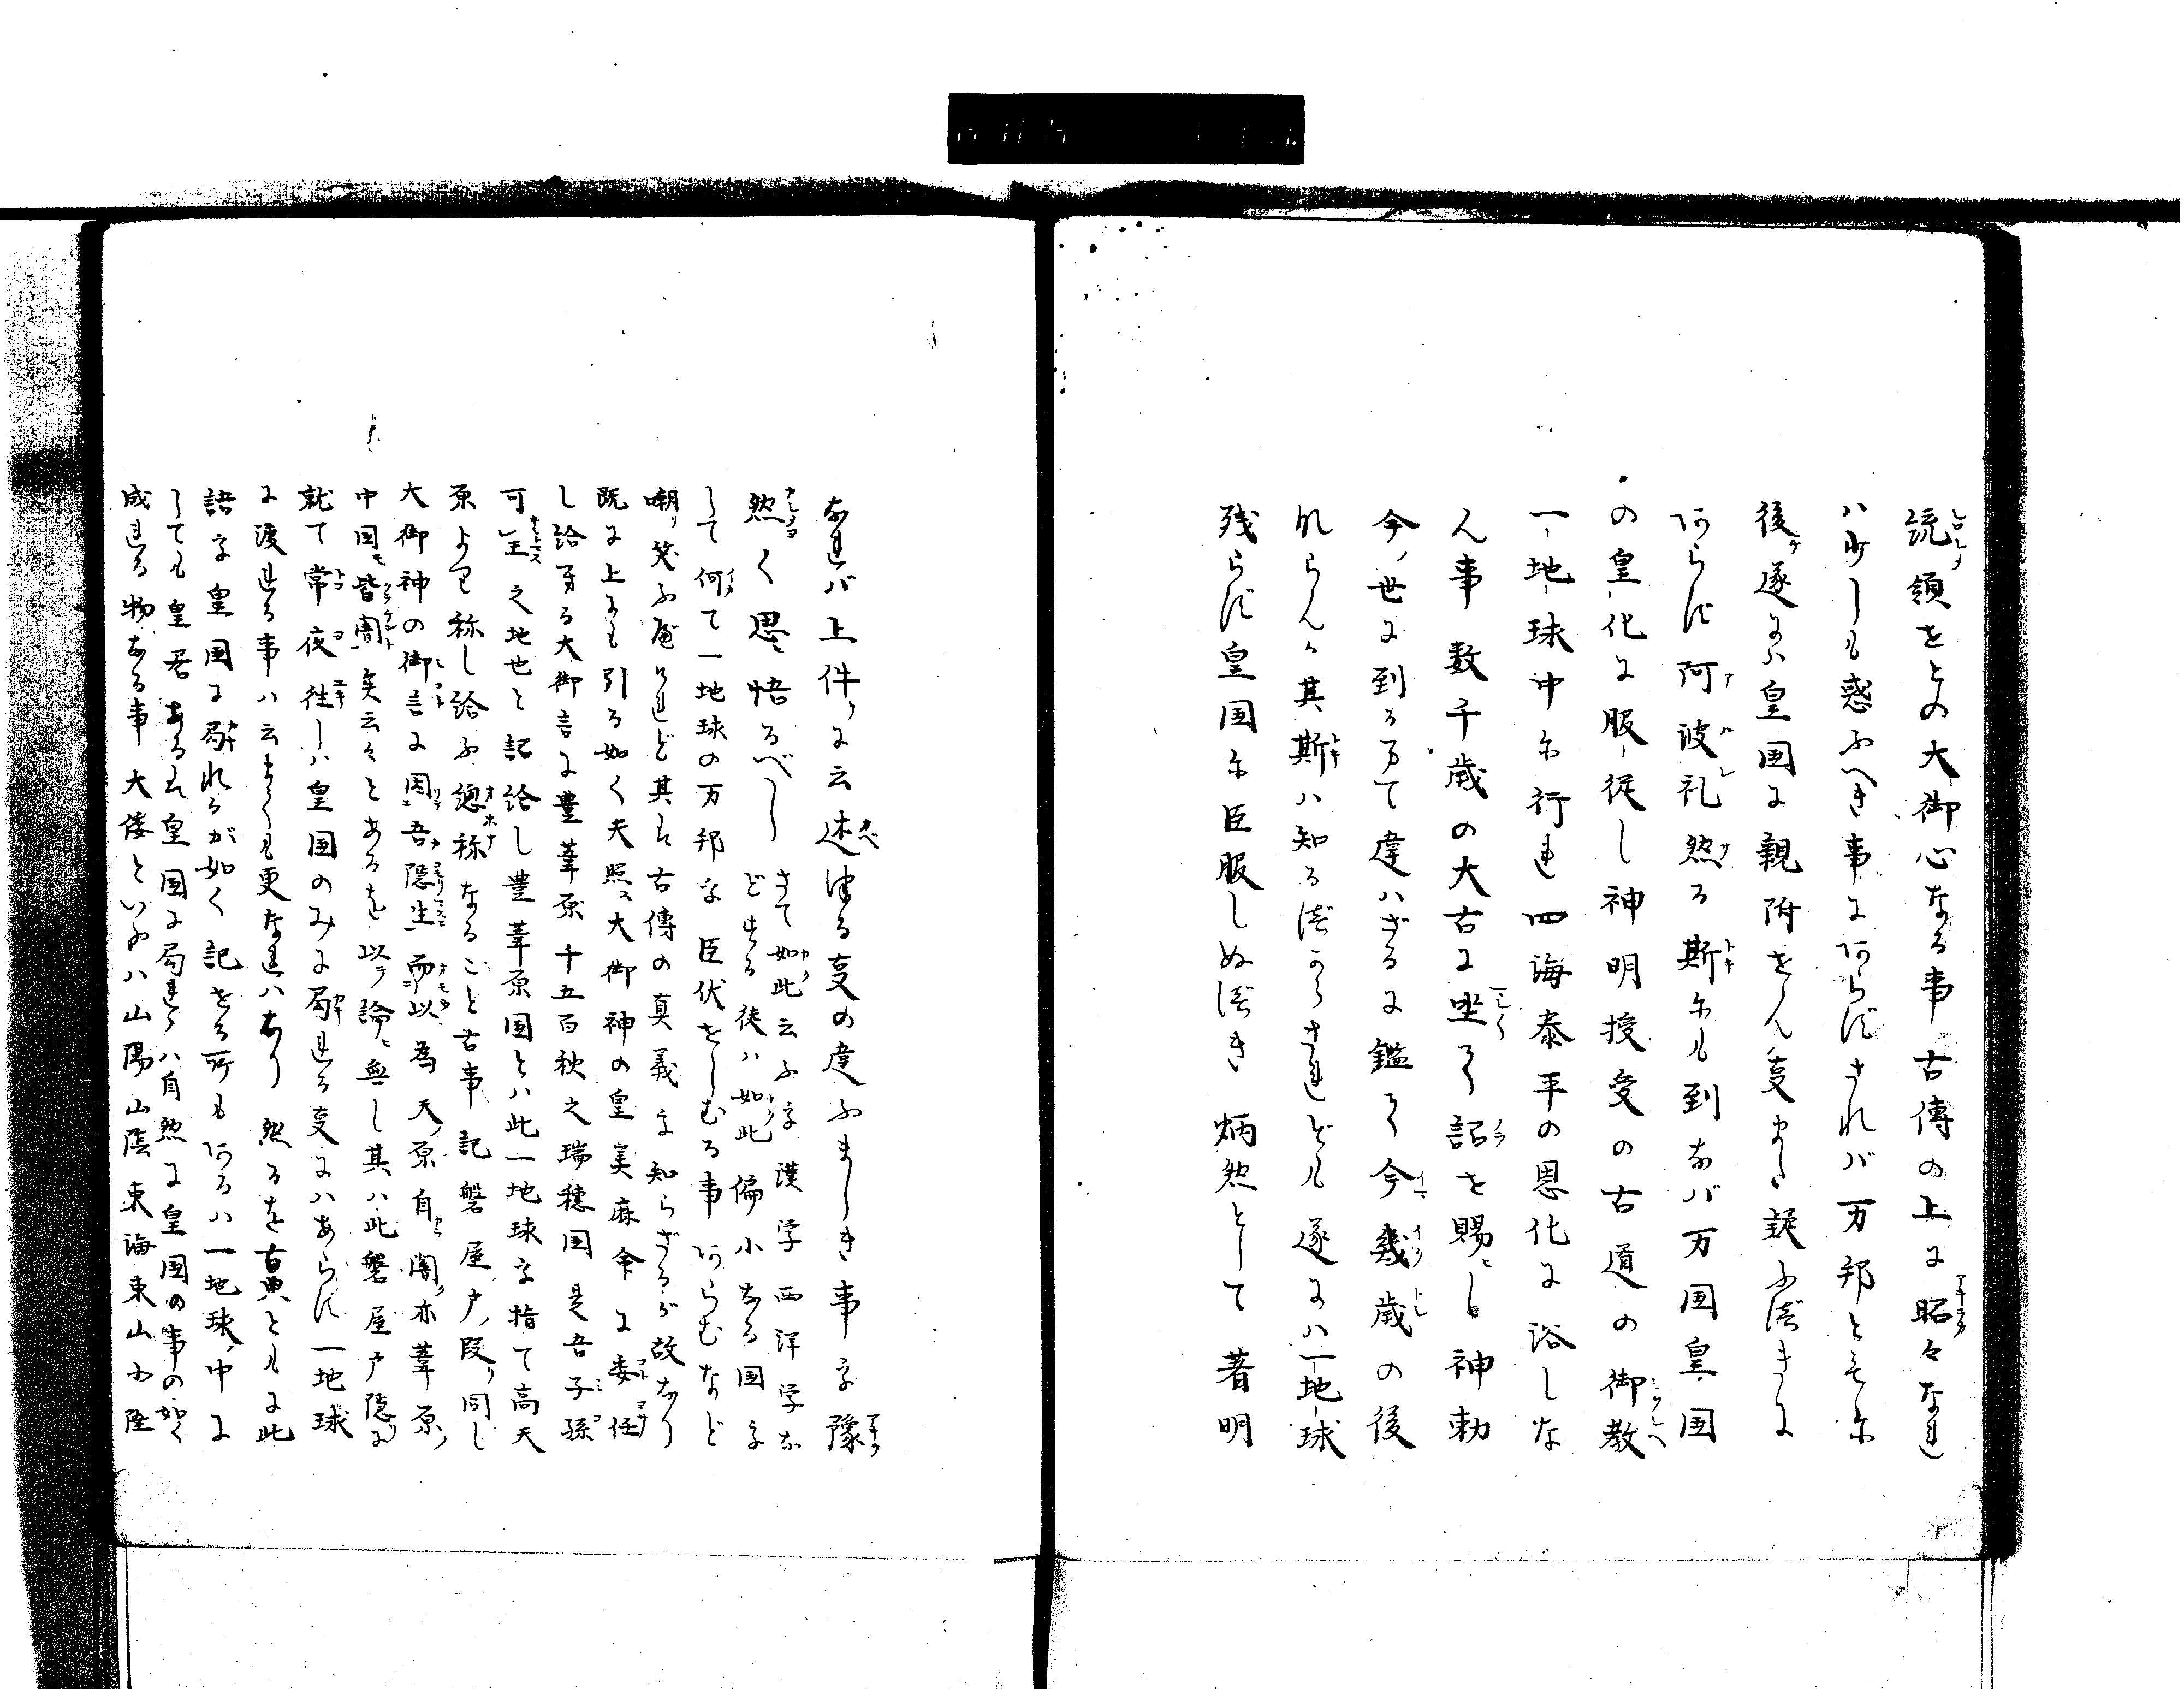 統領せとの大御心なる事古傳の上に昭々なれ
ハ少しも惑ふへき事にあらずされバ万邦とも尓
後遂にハ皇国に親附せん事また疑ふ湾きに
あらず阿波礼然る斯尓も到なバ万国皇国
の皇化に服従し神明授受の古道の御教
一地球中尓行れ四海泰平の恩化に浴しな
ん事数千歳の大古に坐て詔を賜ヒし神勅
今ノ世に到るまて違ハざるに鑑て今幾歳の後
ならんか其斯ハ知る湾からされども遂にハ一地球
残らず皇国尓臣服しぬ湾き炳然として著明
なれバ上件りに云述津る事の違ふましき事を豫
然く思ヒ悟るべしさて如此云ふを漢学西洋学な
ど春る徒ハ如此偏小なる国を
して何て一地球の万邦を臣伏せしむる事あらむなど
嘲リ笑ふ屋けれど其は古傳の真義を知らざるが故なり
既に上にも引る如く天照ス大御神の皇美麻命に委任
し給へる大御言に豊葦原千五百秋之瑞穂国是吾子孫
可王之地也と記給し豊葦原国とハ此一地球を指て高天
原より称し給ふ總称なること古事記磐屋戸ノ段リ同し
大御神の御言に因吾隠生而以為天ノ原自闇ク亦葦原ノ
中国モ皆闇矣云々とあるを以ラ論ヒ無し其ハ此磐屋戸隠リに
就て常夜往しハ皇国のみに局れる事にハあらず一地球
に渡れる事ハ云まくも更なれハなり然るを古典ともに此
語を皇国に局れるが如く記せる所もあるハ一地球ノ中に
しても皇居あるは皇国に局れゝハ自然に皇国の事の如く
成れる物なる事大倭といふハ山陽山陰東海東山北陸